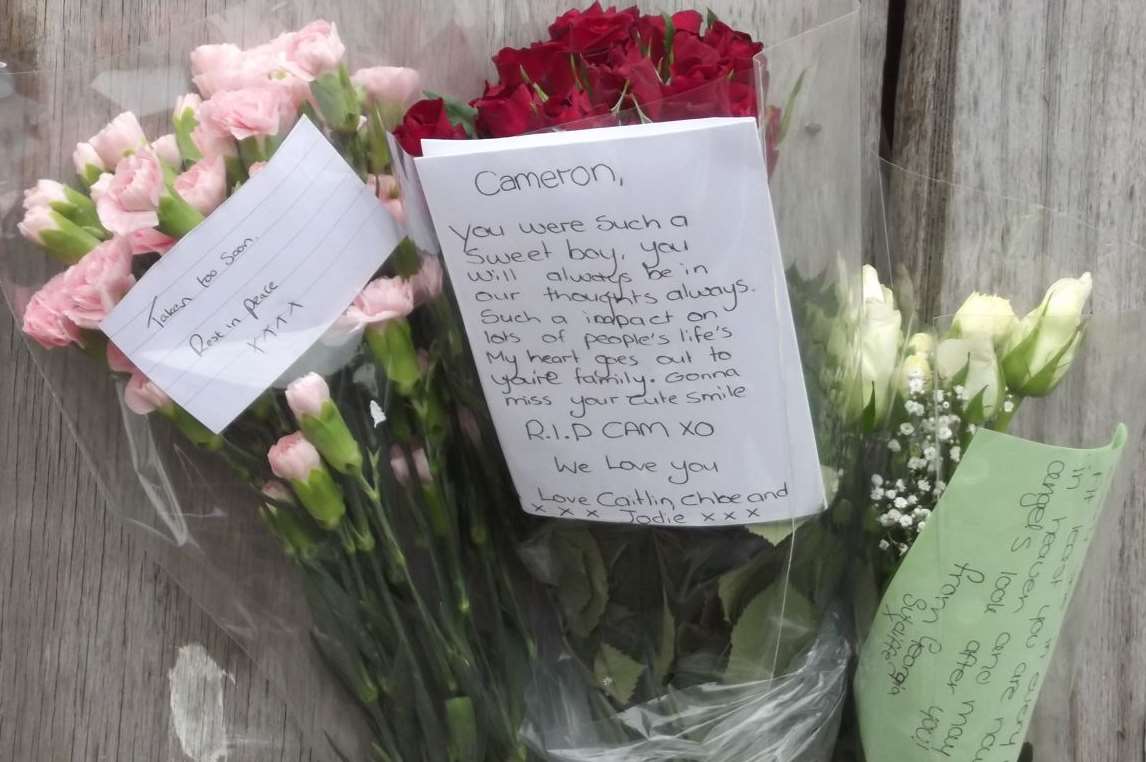 Taken too soon.
Rest in peace
xxxx
Cameron,
You were such a
Sweet boy, you
will always be in
our thoughts always.
Such a impact on
lots of people's life's
My heart goes out to
you're family. Gonna
miss your cute smile
R.I.D CAM XO
We Love you
Love Caitlin, chloe and
x x x Jodie x x x
At least you
in heaven you are now
angels look and may
after you!
from Georgia